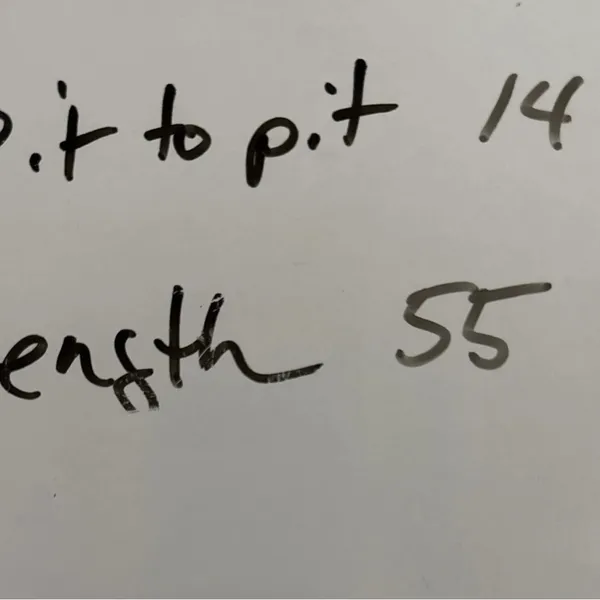 pit to pit 14
ength 55